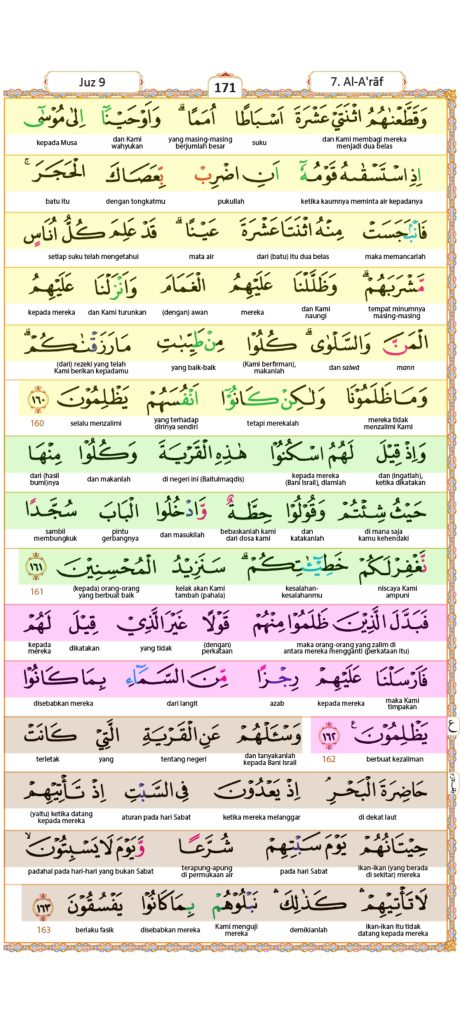 Juz 9
171
7. Al-A'rāf
وَقَطَّعْنٰهُمُ اثْنَتَيْ عَشْرَةَ اَسْبَاطًا اُمَمًاۗ وَاَوْحَيْنَآ اِلٰى مُوْسٰٓى
dan Kami membagi mereka menjadi dua belas suku yang masing-masing berjumlah besar dan Kami wahyukan kepada Musa
اِذِ اسْتَسْقٰىهُ قَوْمُهٗٓ اَنِ اضْرِبْ بِّعَصَاكَ الْحَجَرَۚ
ketika kaumnya meminta air kepadanya pukullah dengan tongkatmu batu itu
فَانْۢبَجَسَتْ مِنْهُ اثْنَتَا عَشْرَةَ عَيْنًاۗ قَدْ عَلِمَ كُلُّ اُنَاسٍ
maka memancarlah dari (batu) itu dua belas mata air setiap suku telah mengetahui
مَّشْرَبَهُمْۗ وَظَلَّلْنَا عَلَيْهِمُ الْغَمَامَ وَاَنْزَلْنَا عَلَيْهِمُ
tempat minumnya masing-masing dan Kami naungi mereka (dengan) awan dan Kami turunkan kepada mereka
الْمَنَّ وَالسَّلْوٰىۗ كُلُوْا مِنْ طَيِّبٰتِ مَا رَزَقْنٰكُمْۗ
mann dan salwa (Kami berfirman), makanlah yang baik-baik (dari) rezeki yang telah Kami berikan kepadamu
وَمَا ظَلَمُوْنَا وَلٰكِنْ كَانُوْٓا اَنْفُسَهُمْ يَظْلِمُوْنَ ١٦٠
mereka tidak menzalimi Kami tetapi merekalah yang terhadap dirinya sendiri selalu menzalimi 160
وَاِذْ قِيْلَ لَهُمُ اسْكُنُوْا هٰذِهِ الْقَرْيَةَ وَكُلُوْا مِنْهَا
dan (ingatlah), ketika dikatakan kepada mereka (Bani Israil), diamlah di negeri ini (Baitulmaqdis) dan makanlah dari (hasil bumi)nya
حَيْثُ شِئْتُمْ وَقُوْلُوْا حِطَّةٌ وَّادْخُلُوا الْبَابَ سُجَّدًا
di mana saja kamu kehendaki dan katakanlah bebaskanlah kami dari dosa kami dan masukilah pintu gerbangnya sambil membungkuk
نَّغْفِرْ لَكُمْ خَطِيْۤـٰٔتِكُمْۗ سَنَزِيْدُ الْمُحْسِنِيْنَ ١٦١
niscaya Kami ampuni kesalahan-kesalahanmu kelak akan Kami tambah (pahala) (kepada) orang-orang yang berbuat baik 161
فَبَدَّلَ الَّذِيْنَ ظَلَمُوْا مِنْهُمْ قَوْلًا غَيْرَ الَّذِيْ قِيْلَ لَهُمْ
maka orang-orang yang zalim di antara mereka mengganti (perkataan itu) (dengan) perkataan yang tidak dikatakan kepada mereka
فَاَرْسَلْنَا عَلَيْهِمْ رِجْزًا مِّنَ السَّمَاۤءِ بِمَا كَانُوْا
maka Kami timpakan kepada mereka azab dari langit disebabkan mereka
يَظْلِمُوْنَ ࣖ ١٦٢ وَسْـَٔلْهُمْ عَنِ الْقَرْيَةِ الَّتِيْ كَانَتْ
berbuat kezaliman 162 dan tanyakanlah kepada Bani Israil tentang negeri yang terletak
ع
حَاضِرَةَ الْبَحْرِۘ اِذْ يَعْدُوْنَ فِى السَّبْتِ اِذْ تَأْتِيْهِمْ
di dekat laut ketika mereka melanggar aturan pada hari Sabat (yaitu) ketika datang kepada mereka
حِيْتَانُهُمْ يَوْمَ سَبْتِهِمْ شُرَّعًا وَّيَوْمَ لَا يَسْبِتُوْنَۙ
ikan-ikan (yang berada di sekitar) mereka pada hari Sabat terapung-apung di permukaan air padahal pada hari-hari yang bukan Sabat
لَا تَأْتِيْهِمْۛ كَذٰلِكَۛ نَبْلُوْهُمْ بِمَا كَانُوْا يَفْسُقُوْنَ ١٦٣
ikan-ikan itu tidak datang kepada mereka demikianlah Kami menguji mereka disebabkan mereka berlaku fasik 163